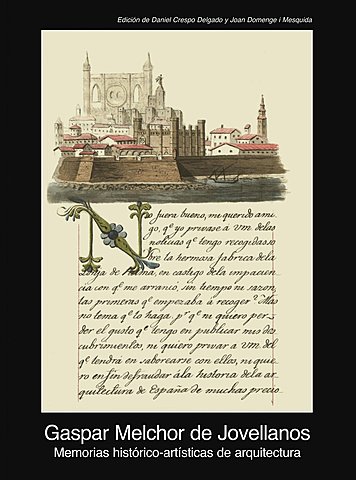 Edición de Daniel Crespo Delgado y Joan Domenge i Mesquida
No fuera bueno, mi querido ami-
go, qᵉ yo privase a Vm. de las
noticias qᵉ tengo recogidas so
bre la hermosa fabrica de la
Lonja de Palma, en castigo del a impacien
cia con qᵉ me arrancó, sin tiempo ni sazon,
las primeras qᵉ empezaba á recoger? Mas
no tema qᵉ lo haga, p.ʳ qᵉ ni quiero per-
der el gusto qᵉ tengo en publicar mis des
cubrimientos, ni quiero privar a Vm. del
qᵉ tendrá en saborearse con ellos, ni quie
ro en fin defraudar á la historia de la ar-
quitectura de España de muchas precio
Gaspar Melchor de Jovellanos
Memorias histórico-artísticas de arquitectura